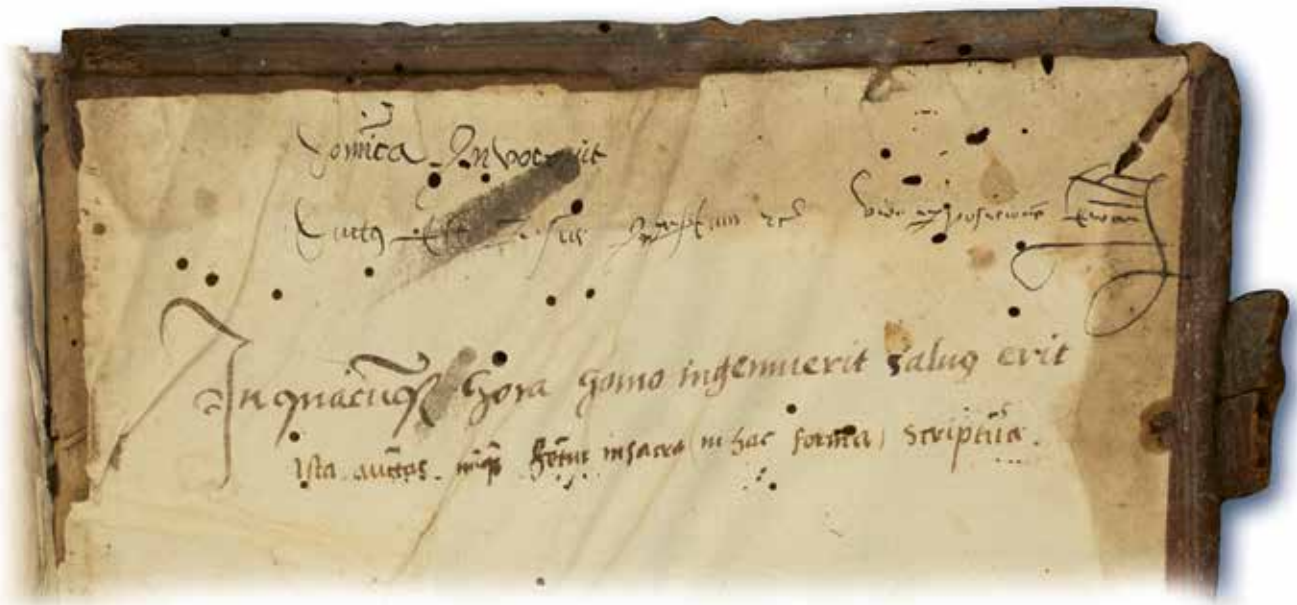 Domica Invocavit
Ductus est Jesus
In quacuq hora homo ingemuerit saluq erit
Ista auctas nuqp hetur in sacra (in hac forma) Scriptura.